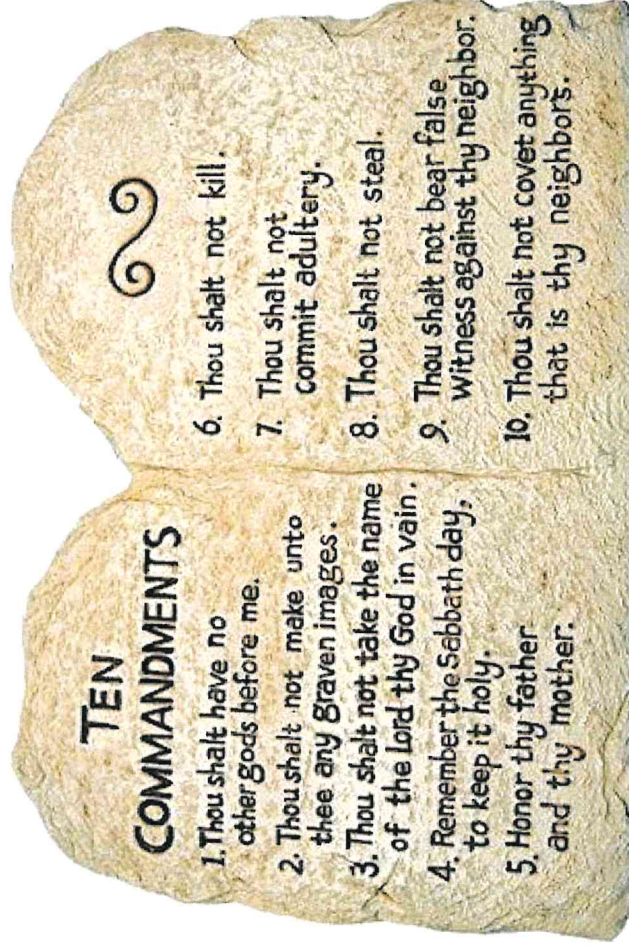 TEN
COMMANDMENTS
1. Thou shalt have no
other gods before me.
2. Thou shalt not make unto
thee any graven images.
3. Thou shalt not take the name
of the Lord thy God in vain.
4. Remember the Sabbath day,
to keep it holy.
5. Honor thy father
and thy mother.
6. Thou shalt not kill.
7. Thou shalt not
commit adultery.
8. Thou shalt not steal.
9. Thou shalt not bear false
Witness against thy neighbor.
10. Thou shalt not covet anything
that is thy neighbor's.